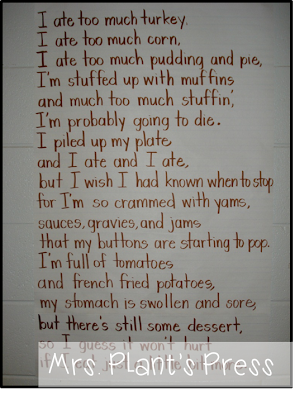 I ate too much turkey.
I ate too much corn,
I ate too much pudding and pie,
I'm stuffed up with muffins
and much too much stuffin',
I'm probably going to die.
I piled up my plate
and I ate and I ate,
but I wish I had known when to stop
for I'm so crammed with yams,
sauces, gravies, and jams
that my buttons are starting to pop.
I'm full of tomatoes
and french fried potatoes,
my stomach is swollen and sore,
but there's still some dessert,
so I guess it won't hurt
Mrs. Plant's Press